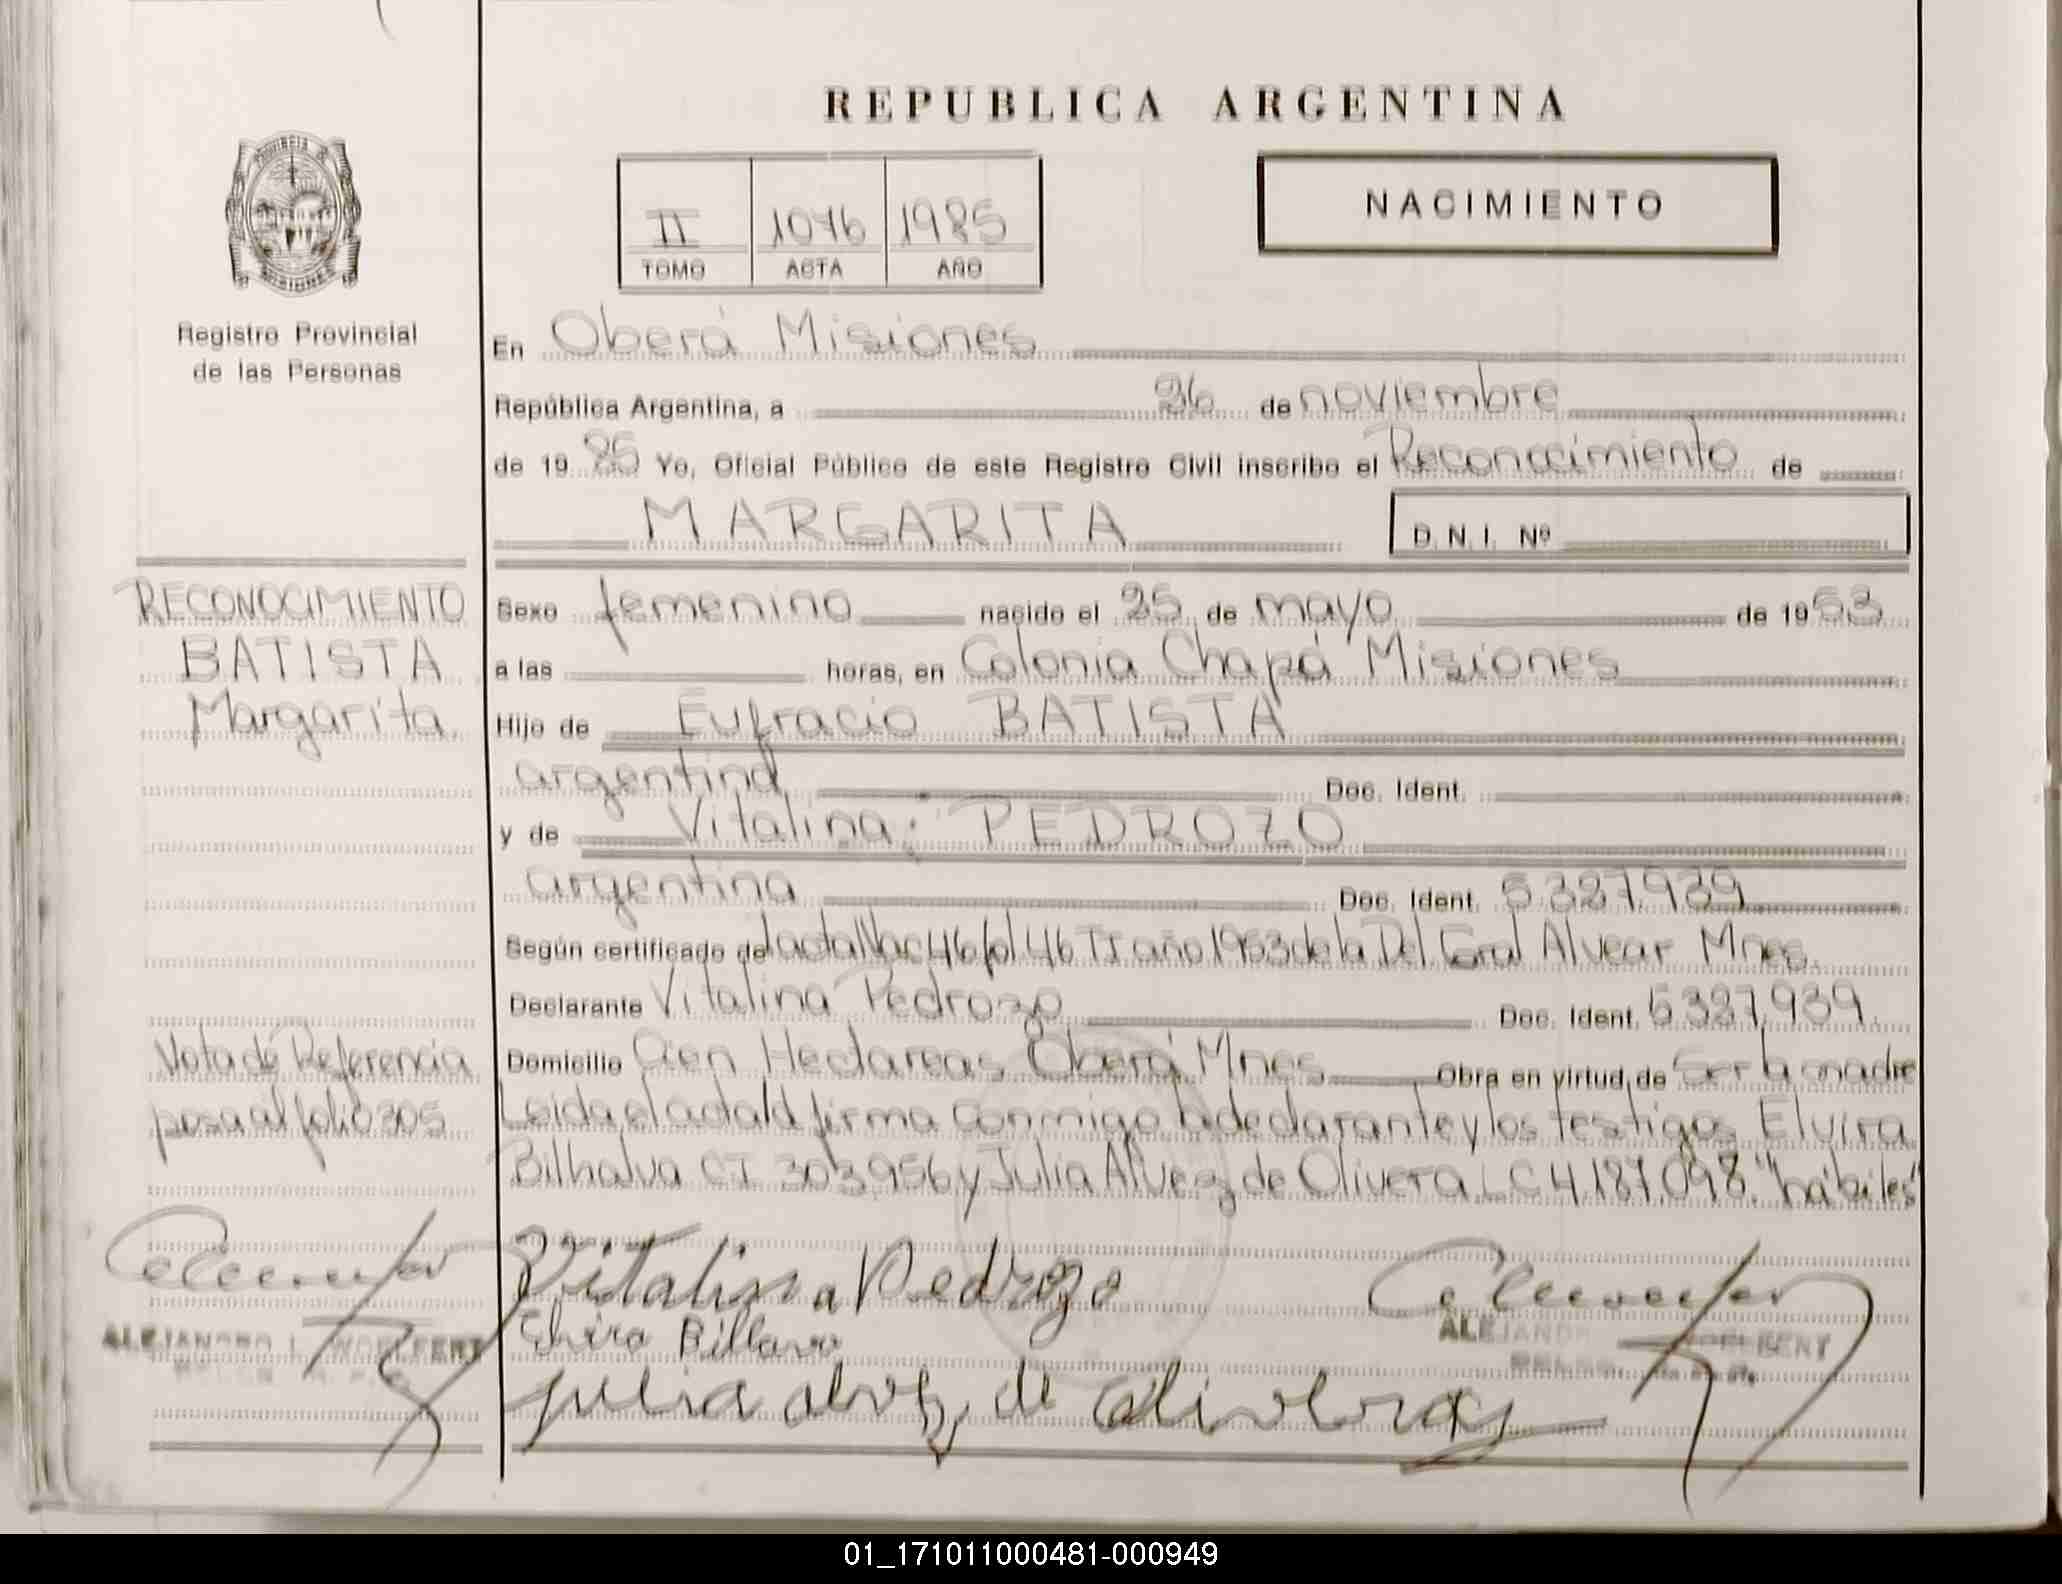 REPUBLICA ARGENTINA
II 1076 1985
TOMO ACTA AÑO
NACIMIENTO
Registro Provincial
de las Personas
En Oberá Misiones
República Argentina, a 26 de noviembre
de 19 85 Yo, Oficial Público de este Registro Civil inscribo el Reconocimiento de
MARGARITA
D.N.I. Nº
RECONOCIMIENTO
BATISTA
Margarita
Sexo femenino nacido el 25 de mayo de 19 53
a las horas, en Colonia Chapá Misiones
Hijo de Eufracio BATISTA
argentina Doc. Ident.
y de Vitalina PEDROZO
argentina Doc. Ident. 5.387.939
Según certificado de acta Nac 46 fol 46 T año 1953 de la Del Gral Alvear Mnes.
Declarante Vitalina Pedrozo Doc. Ident. 5.387.939
Domicilio Cien Hectareas Oberá Mnes Obra en virtud de ser la madre
Leida el acta la firma conmigo la declarante y los testigos Elvira
Bilhalva CI 303.956 y Julia Alvez de Olivera LC 4.187.098. "hábiles"
Nota de Referencia
pasa al folio 305
Vitalina Pedrozo
Elvira Billava
Julia alvez de oliveira
ALEJANDRO L. WOELFERT
01_171011000481-000949